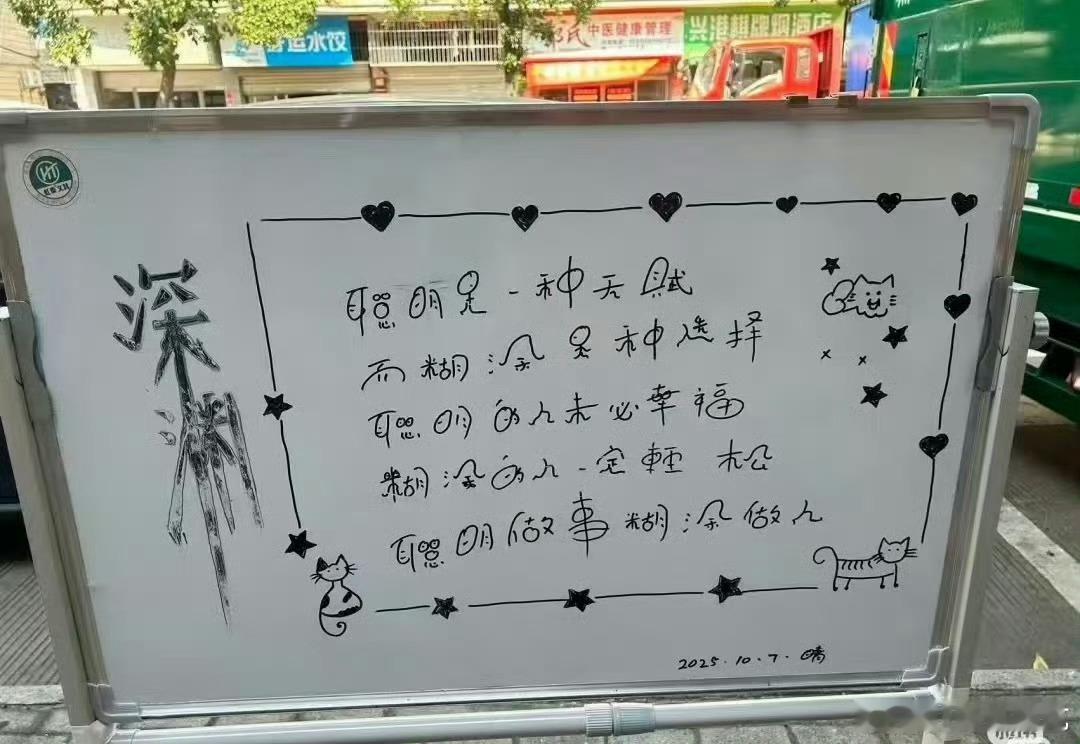 水饺
中医健康管理
兴港麒牌烟酒店
深渊
聪明是一种天赋
而糊涂是种选择
聪明的人未必幸福
糊涂的人一定輕松
聪明做事糊涂做人
2025.10.7.晴